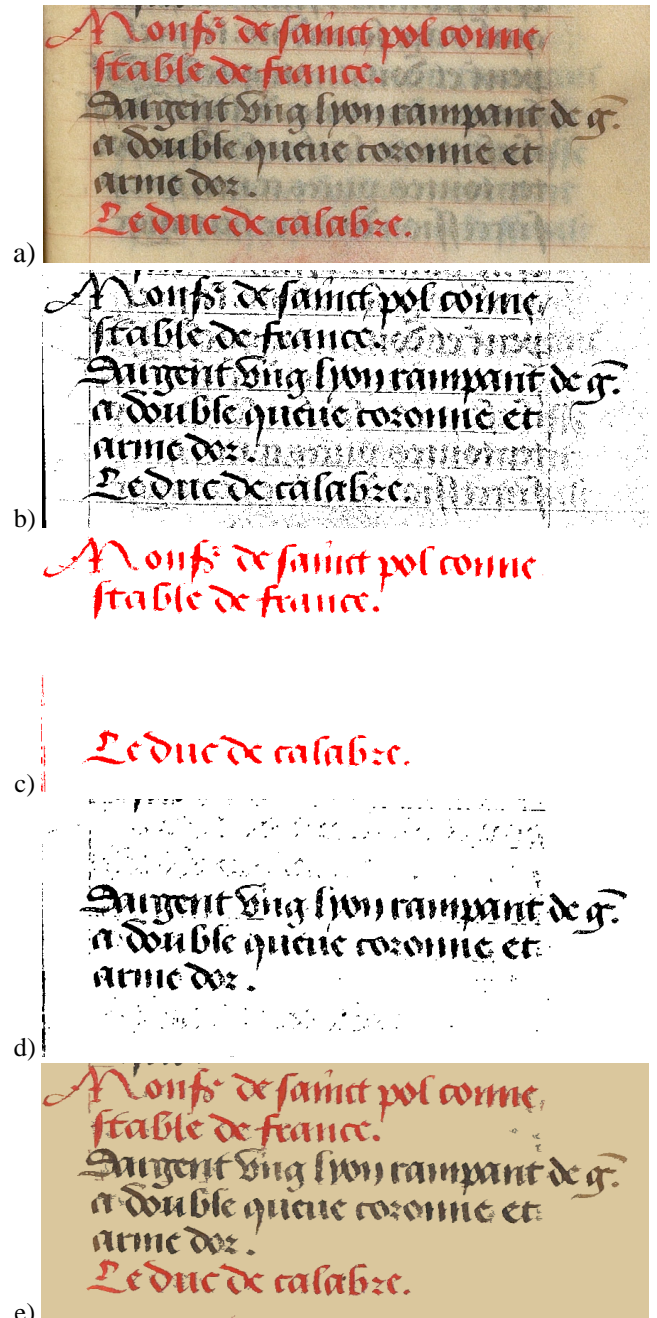 a)
Monsr de sainct pol conne
stable de france.
Dargent vng lyon rampant de g.
a double queue coronne et
arme dor.
Le duc de calabre.
b)
Monsr de sainct pol conne
stable de france.
Dargent vng lyon rampant de g.
a double queue coronne et
arme dor.
Le duc de calabre.
c)
Monsr de sainct pol conne
stable de france.
Le duc de calabre.
d)
Dargent vng lyon rampant de g.
a double queue coronne et
arme dor.
e)
Monsr de sainct pol conne
stable de france.
Dargent vng lyon rampant de g.
a double queue coronne et
arme dor.
Le duc de calabre.